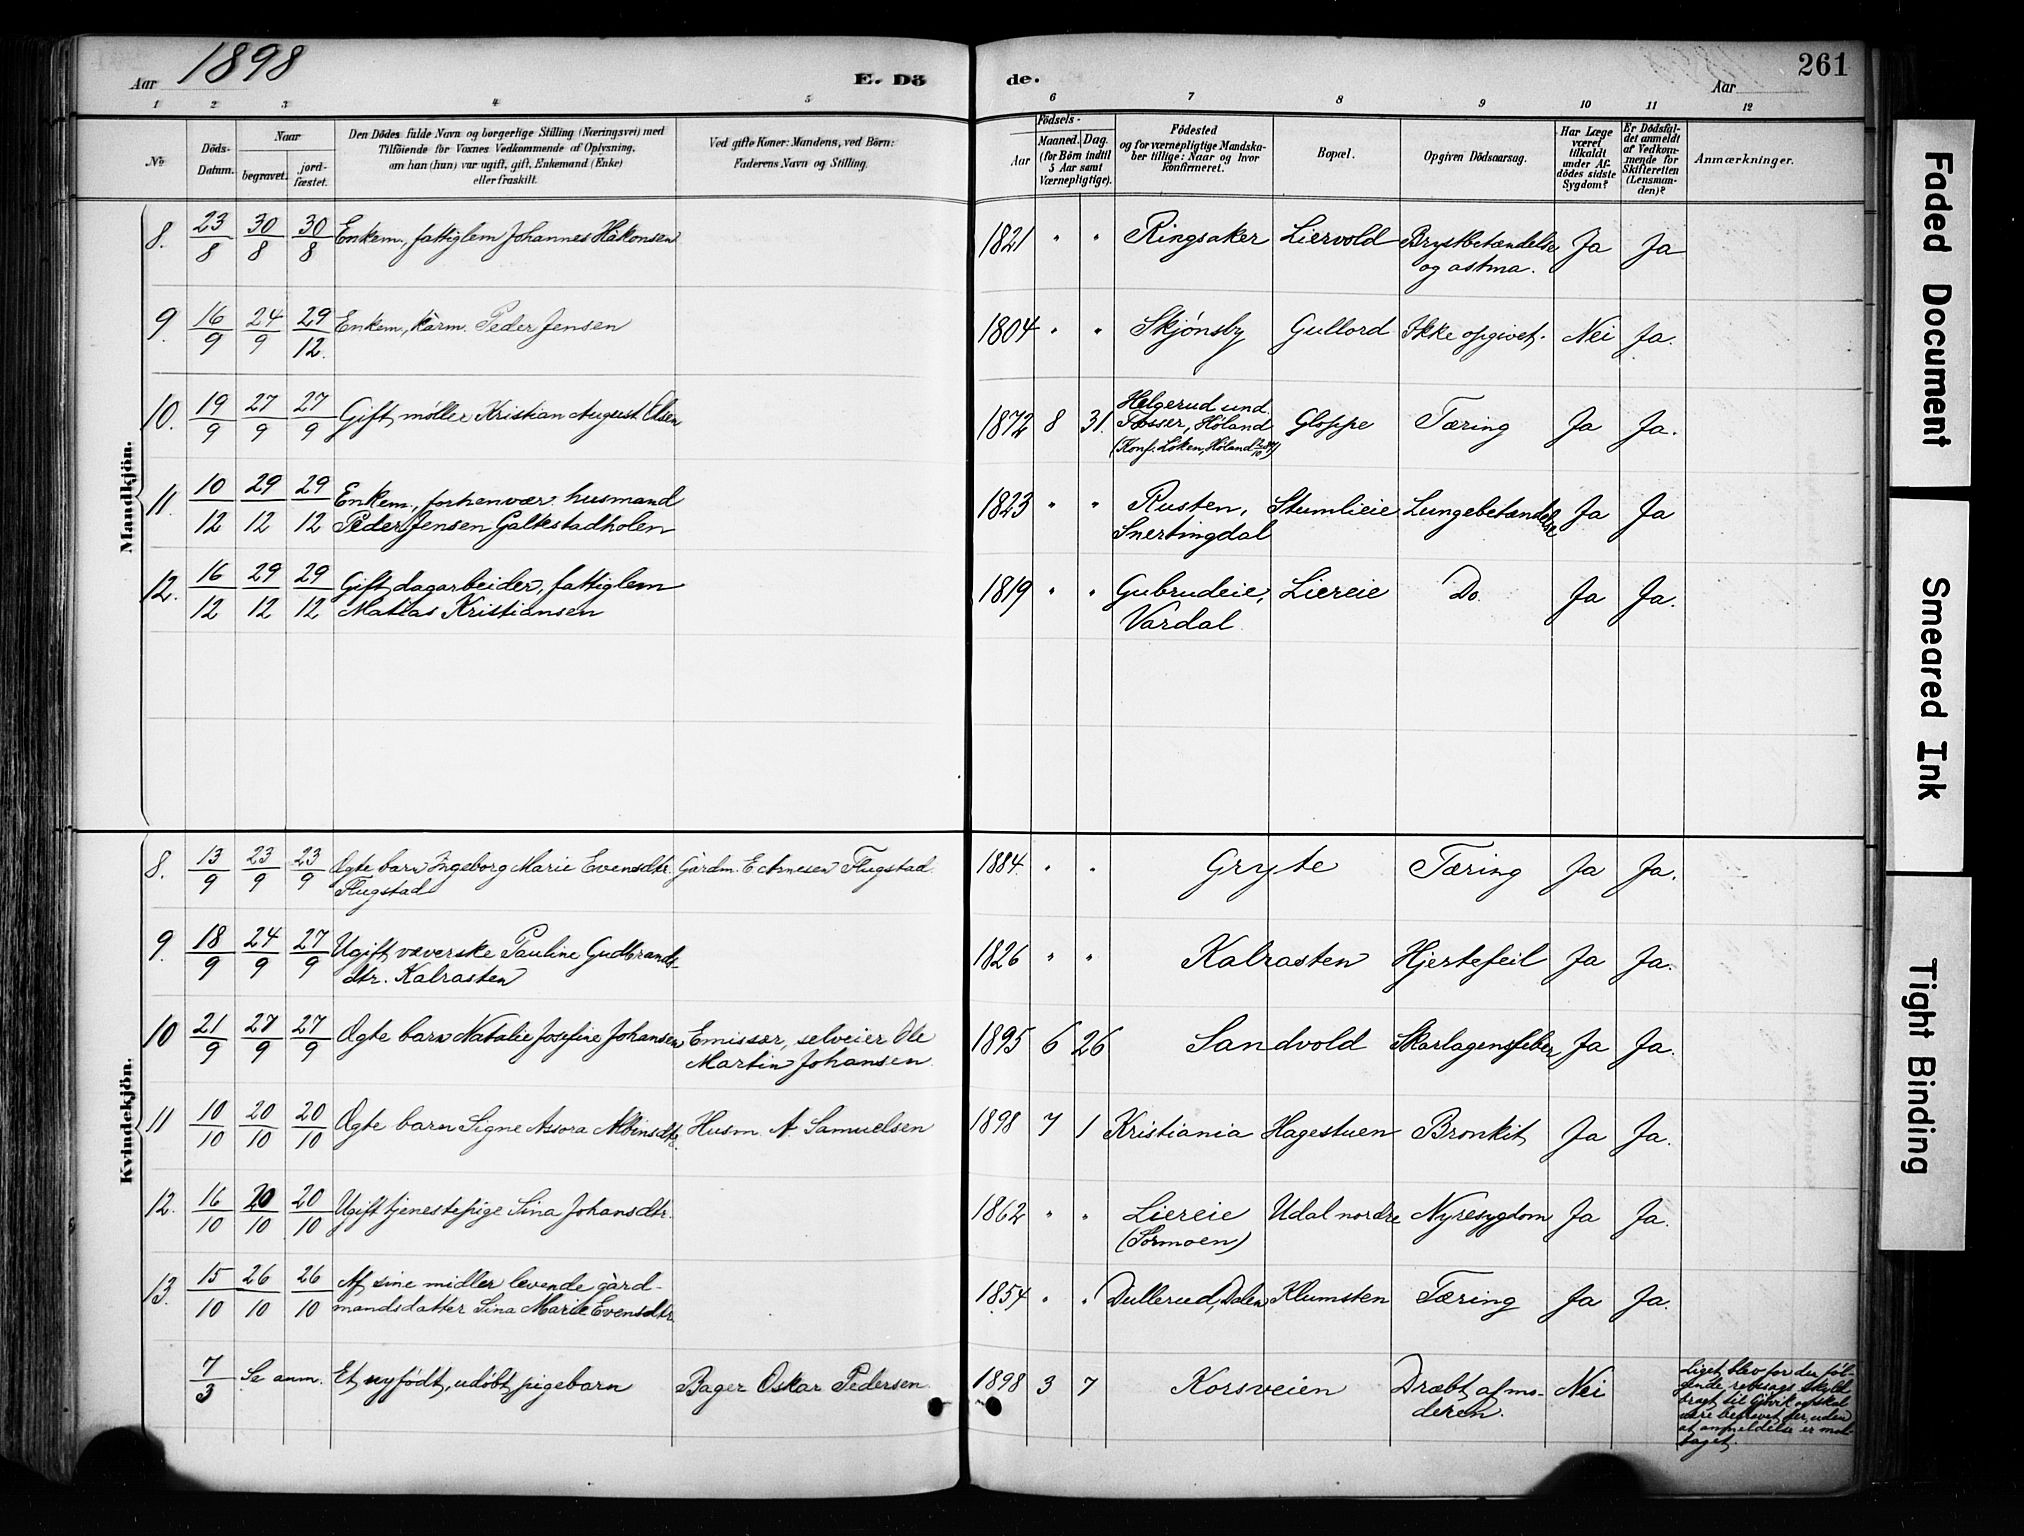 Aar 1898 E. Döde. Aar 261
1 2 3 4 5 6 7 8 9 10 11 12
No.
Döds-Datum.
Naar
begravet.
jord-fæstet.
Den Dödes fulde Navn og borgerlige Stilling (Næringsvei) med
Tilföiende for Voxnes Vedkommende af Oplysning,
om han (hun) var ugift, gift, Enkemand (Enke)
eller fraskilt.
Ved gifte Koner: Mandens, ved Börn:
Faderens Navn og Stilling.
Födsels-
Aar
Maaned.
Dag.
(for Börn indtil
5 Aar samt
Værnepligtige).
Födested
og for værnepligtige Mandska-
ber tillige: Naar og hvor
konfirmeret.
Bopæl.
Opgiven Dödsaarsag.
Har Læge
været
tilkaldt
under Af-
dödes sidste
Sygdom?
Er Dödsfal-
det anmeldt
af Vedkom-
mende for
Skifteretten
(Lensman-
den)?
Anmærkninger.
Mandkjön.
8. 23/8 30/8 30/8 Enkem., fattiglem Johannes Håkonsen 1821 " " Ringsaker Liervold Brystbetændelse Ja Ja
og astma.
9. 16/9 24/9 29/12. Enkem., kårm. Peder Jensen 1804 " " Skjønsby Gullord Ikke opgivet. Nei Ja.
10. 19/9 27/9 27/9 Gift møller Kristian August Olsen 1872 8 31. Helgerud und. Gloppe Tæring Ja Ja.
Fosser, Høland
(Konf. Løken, Høland
11. 10/12 29/12 29/12 Enkem., forhenvær. husmand 1823 " " Rusten, Stumlieie Lungebetændelse Ja Ja
Peder Jensen Galtestadholen Snertingdal
12. 16/12 29/12 29/12 Gift dagarbeider, fattiglem 1819 " " Gubrudeie, Liereie Do. Ja Ja.
Matias Kristiansen Vardal.
Kvindekjön.
8. 13/9 23/9 23/9 Ægte barn Ingeborg Marie Evensdtr. Gårdm. E. Arnesen Flugstad. 1884. " " Gryte Tæring Ja Ja.
Flugstad
9. 18/9 24/9 27/9 Ugift væverske Pauline Gudbrands- 1826 " " Kalrasten Hjertefeil Ja Ja.
dtr. Kalrasten
10 21/9 27/9 27/9 Ægte barn Natalie Josefine Johansen, Emissær, selveier Ole 1895 6 26 Sandvold Skarlagensfeber Ja Ja.
Martin Johansen.
11 10/10 20/10 20/10 Ægte barn Signe Assora Albinsdtr. Husm. A. Samuelsen 1898 7 1 Kristiania Hagestuen Bronkit Ja Ja.
12. 16/10 20/10 20/10 Ugift tjenestepige Sina Johansdtr. 1862 " " Liereie Udal nordre Nyresygdom Ja Ja.
(Sormoen)
13. 15/10 26/10 26/10 Af sine midler levende gård- 1854 " " Dullerud, Dalen Klumsten Tæring Ja Ja.
mandsdatter Sina Marie Evensdtr.
7/3 Se anm. Et nyfødt, udøbt pigebarn Bager Oskar Pedersen. 1898 3 7 Korsveien Dræbt af mo- Nei
deren.
Liget blev for den føl-
gende retssags skyld
bragt til Gjøvik og skal
være begravet der, uden
at anmeldelse er mod-
taget.
Faded Document
Smeared Ink
Tight Binding